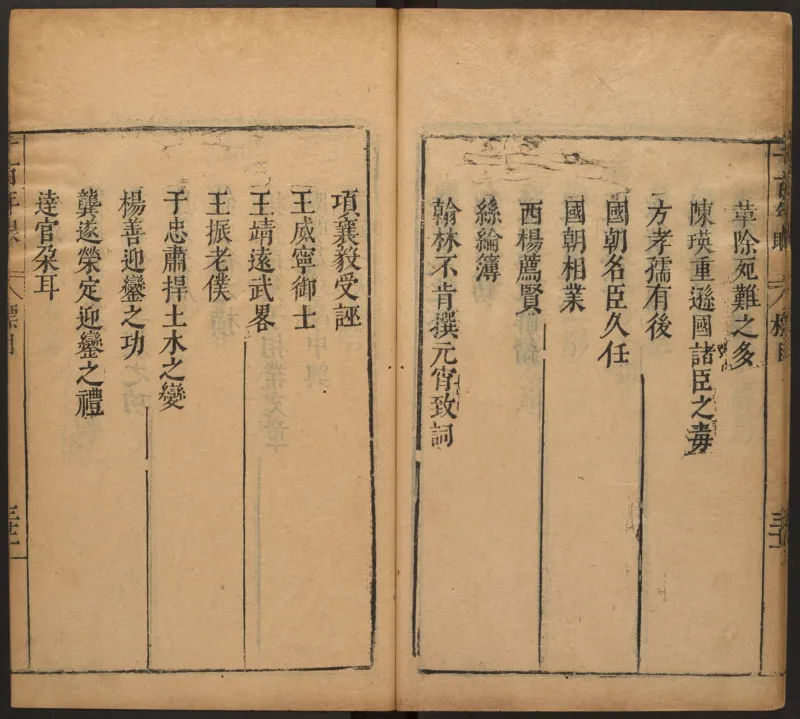 革除死難之多
陳瑛重遜國諸臣之毒
方孝孺有後
國朝名臣久任
國朝相業
西楊薦賢
絲綸簿
翰林不肯撰元宵致詞
項襄毅受誣
王威寧御士
王靖遠武畧
王振老僕
于忠肅捍土木之變
楊善迎鑾之功
龔遂榮定迎鑾之禮
達官朶耳